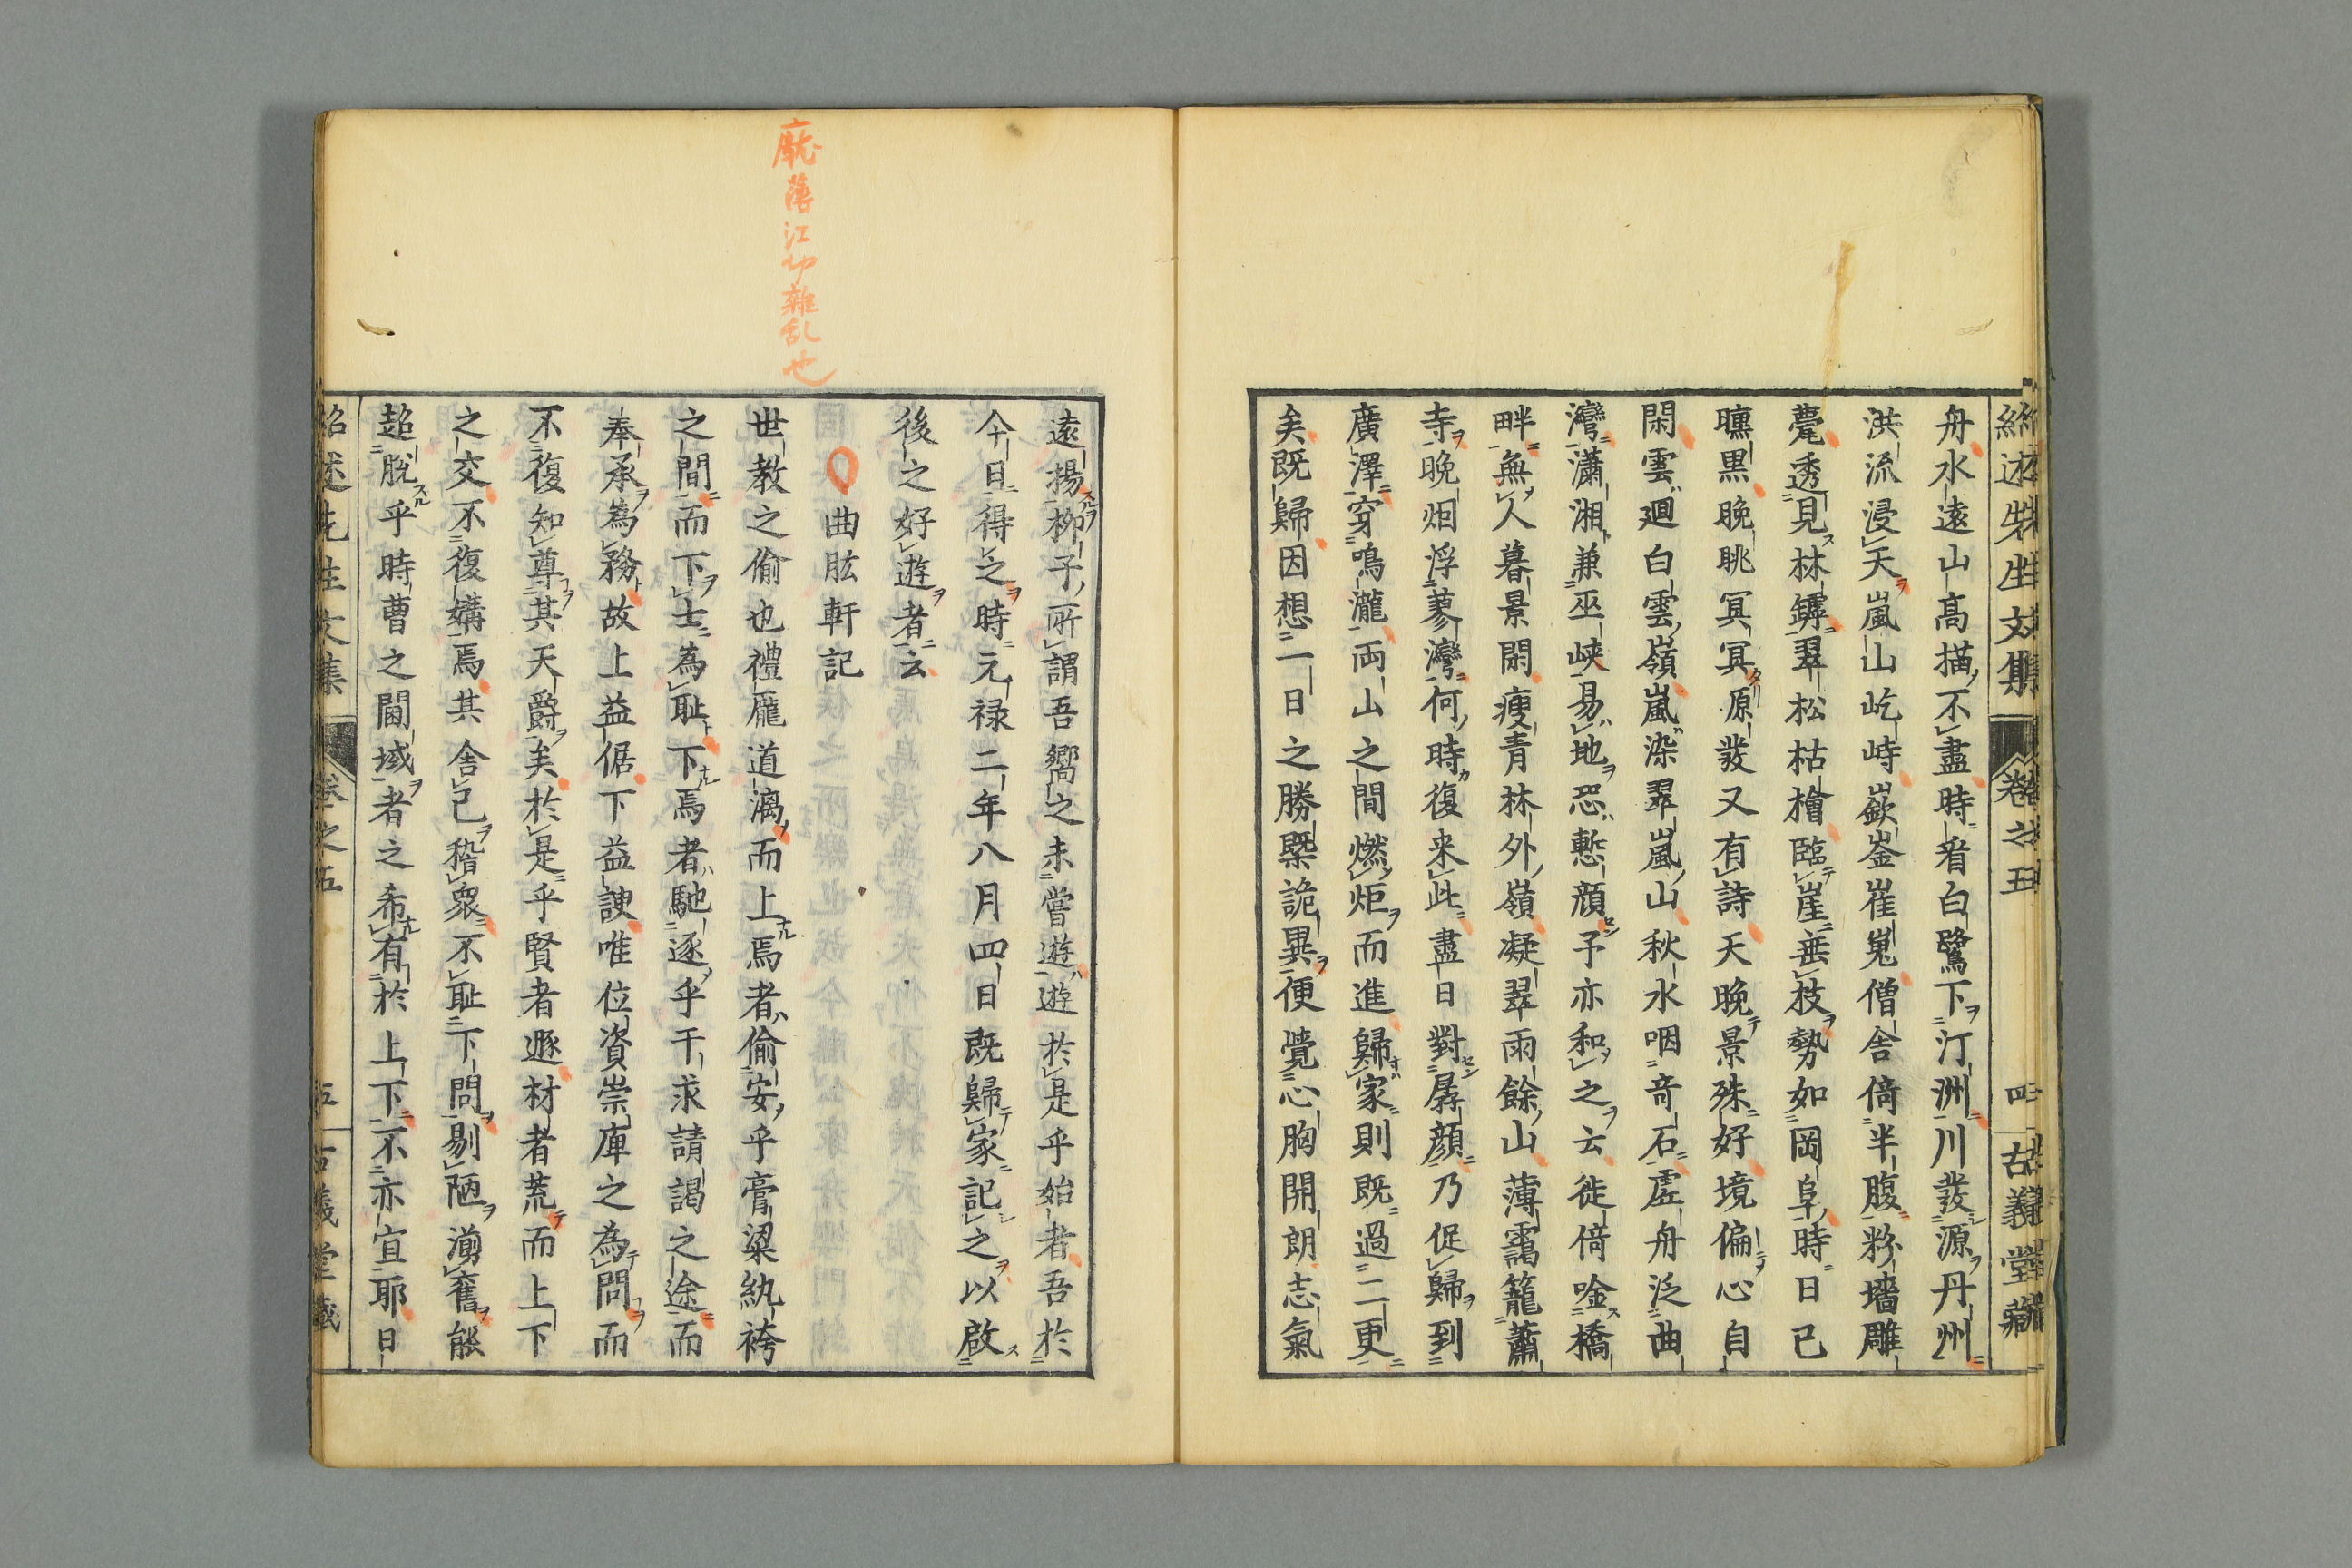 紹述先生文集 卷之五 四 古義堂藏
舟水遠山高描不盡時看白鷺下汀洲川發源丹州
洪流浸天嵐山屹峙嶔崟崔嵬僧舍倚半腹粉墻雕
甍透見林罅翠松枯檜臨崖垂枝勢如岡阜時日已
曛黒晩眺冥冥原發又有詩天晩景殊好境偏心自
閑雲廻白雲嶺嵐染翠嵐山秋水咽奇石虚舟泛曲
灣瀟湘兼巫峽易地恐慙顔予亦和之云徙倚唫橋
畔無人暮景閑痩青林外嶺凝翠雨餘山薄靄籠蕭
寺晩烟浮蓼灣何時復来此盡日對孱顔乃促歸到
廣澤穿鳴瀧両山之間燃炬而進歸家則既過二更
矣既歸因想一日之勝槩詭異便覺心胸開朗志氣
遠揚栁子所謂吾嚮之未嘗遊遊於是乎始者吾於
今日得之時元禄二年八月四日既歸家記之以啟
後之好遊者云
曲肱軒記
世教之偷也禮厖道漓而上焉者偷安乎膏粱紈袴
之間而下士為耻下焉者馳逐乎干求請謁之途而
奉承為務故上益倨下益諛唯位資崇庫之為問而
不復知尊其天爵矣於是乎賢者遯材者荒而上下
之交不復媾焉其舍己稽衆不耻下問剔陋湔舊能
超脱乎時曹之閫域者之希有於上下不亦宜耶日
紹述先生文集 卷之五 五 古義堂藏
厖薄江切雜乱也